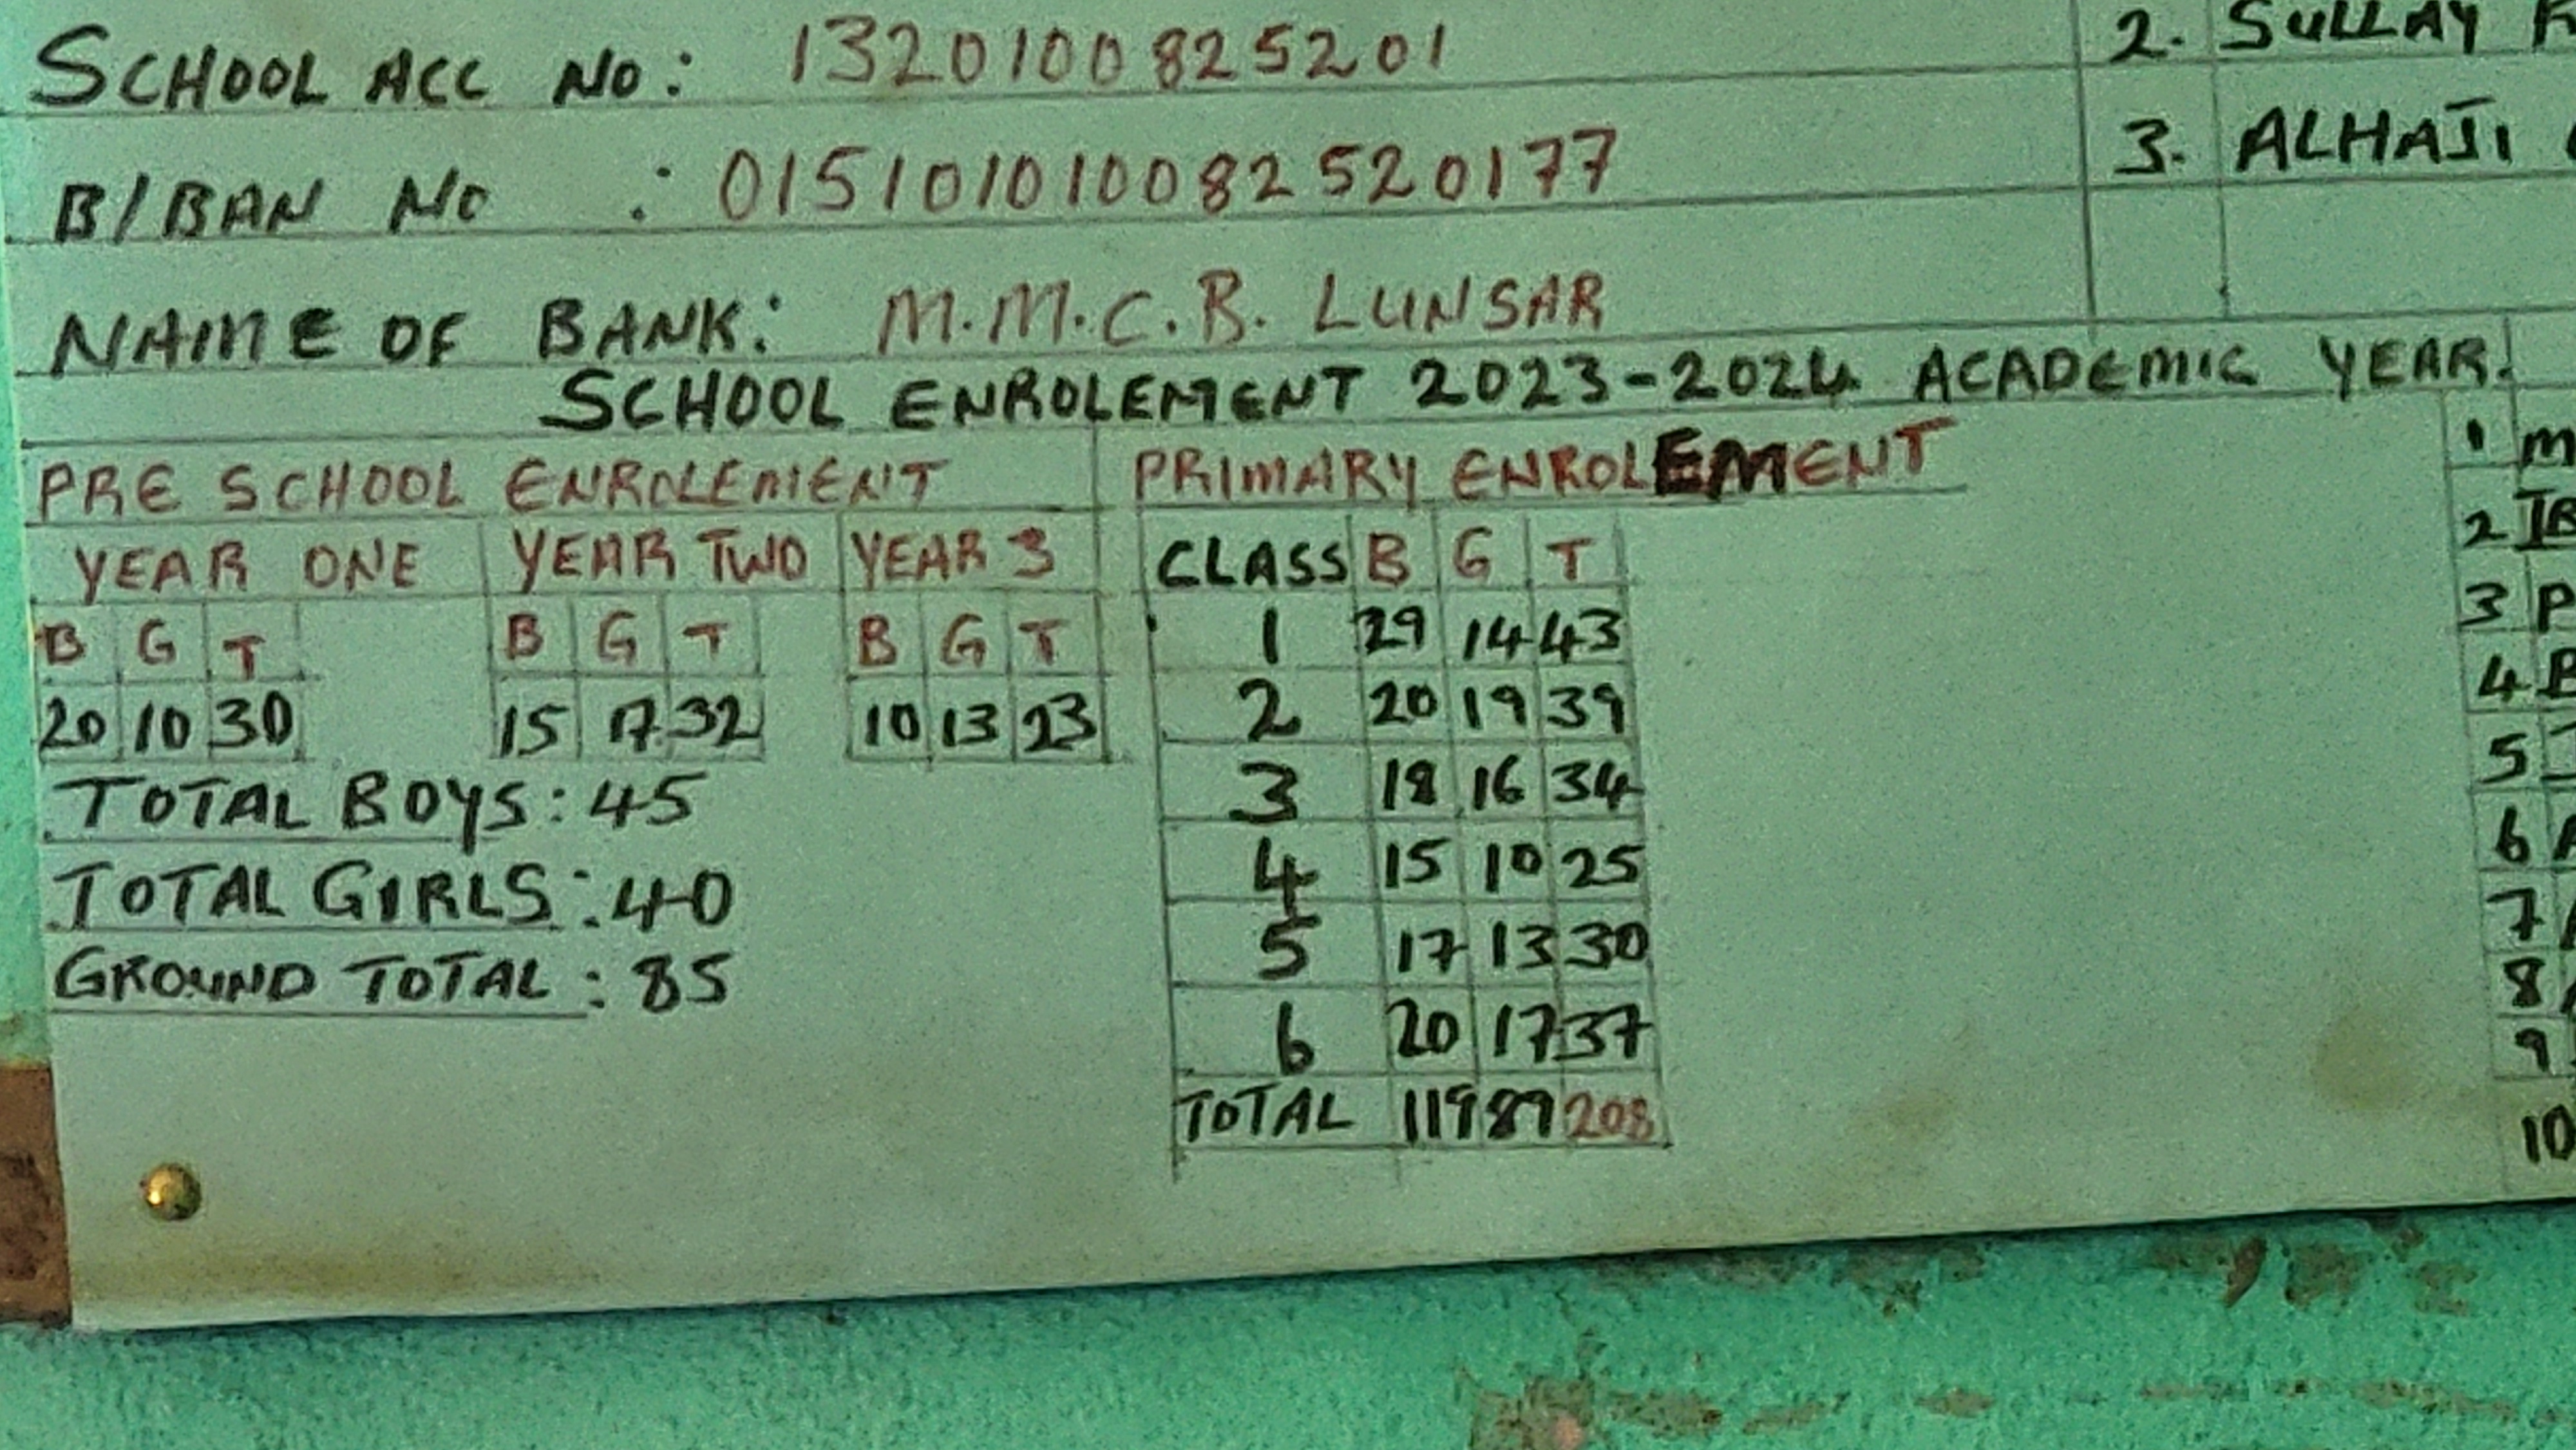 SCHOOL ACC NO: 1320100825201
B/BAN NO : 015101010082520177
NAME OF BANK: M.M.C.B. LUNSAR
2. SULLAY
3. ALHAJI
SCHOOL ENROLEMENT 2023-2024 ACADEMIC YEAR.
PRE SCHOOL ENROLEMENT
YEAR ONE YEAR TWO YEAR 3
B G T B G T B G T
20 10 30 15 17 32 10 13 23
TOTAL BOYS: 45
TOTAL GIRLS: 40
GROUND TOTAL: 85
PRIMARY ENROLEMENT
CLASS B G T
1 29 14 43
2 20 19 39
3 18 16 34
4 15 10 25
5 17 13 30
6 20 17 37
TOTAL 119 89 208
1
2
3
4
5
6
7
8
9
10